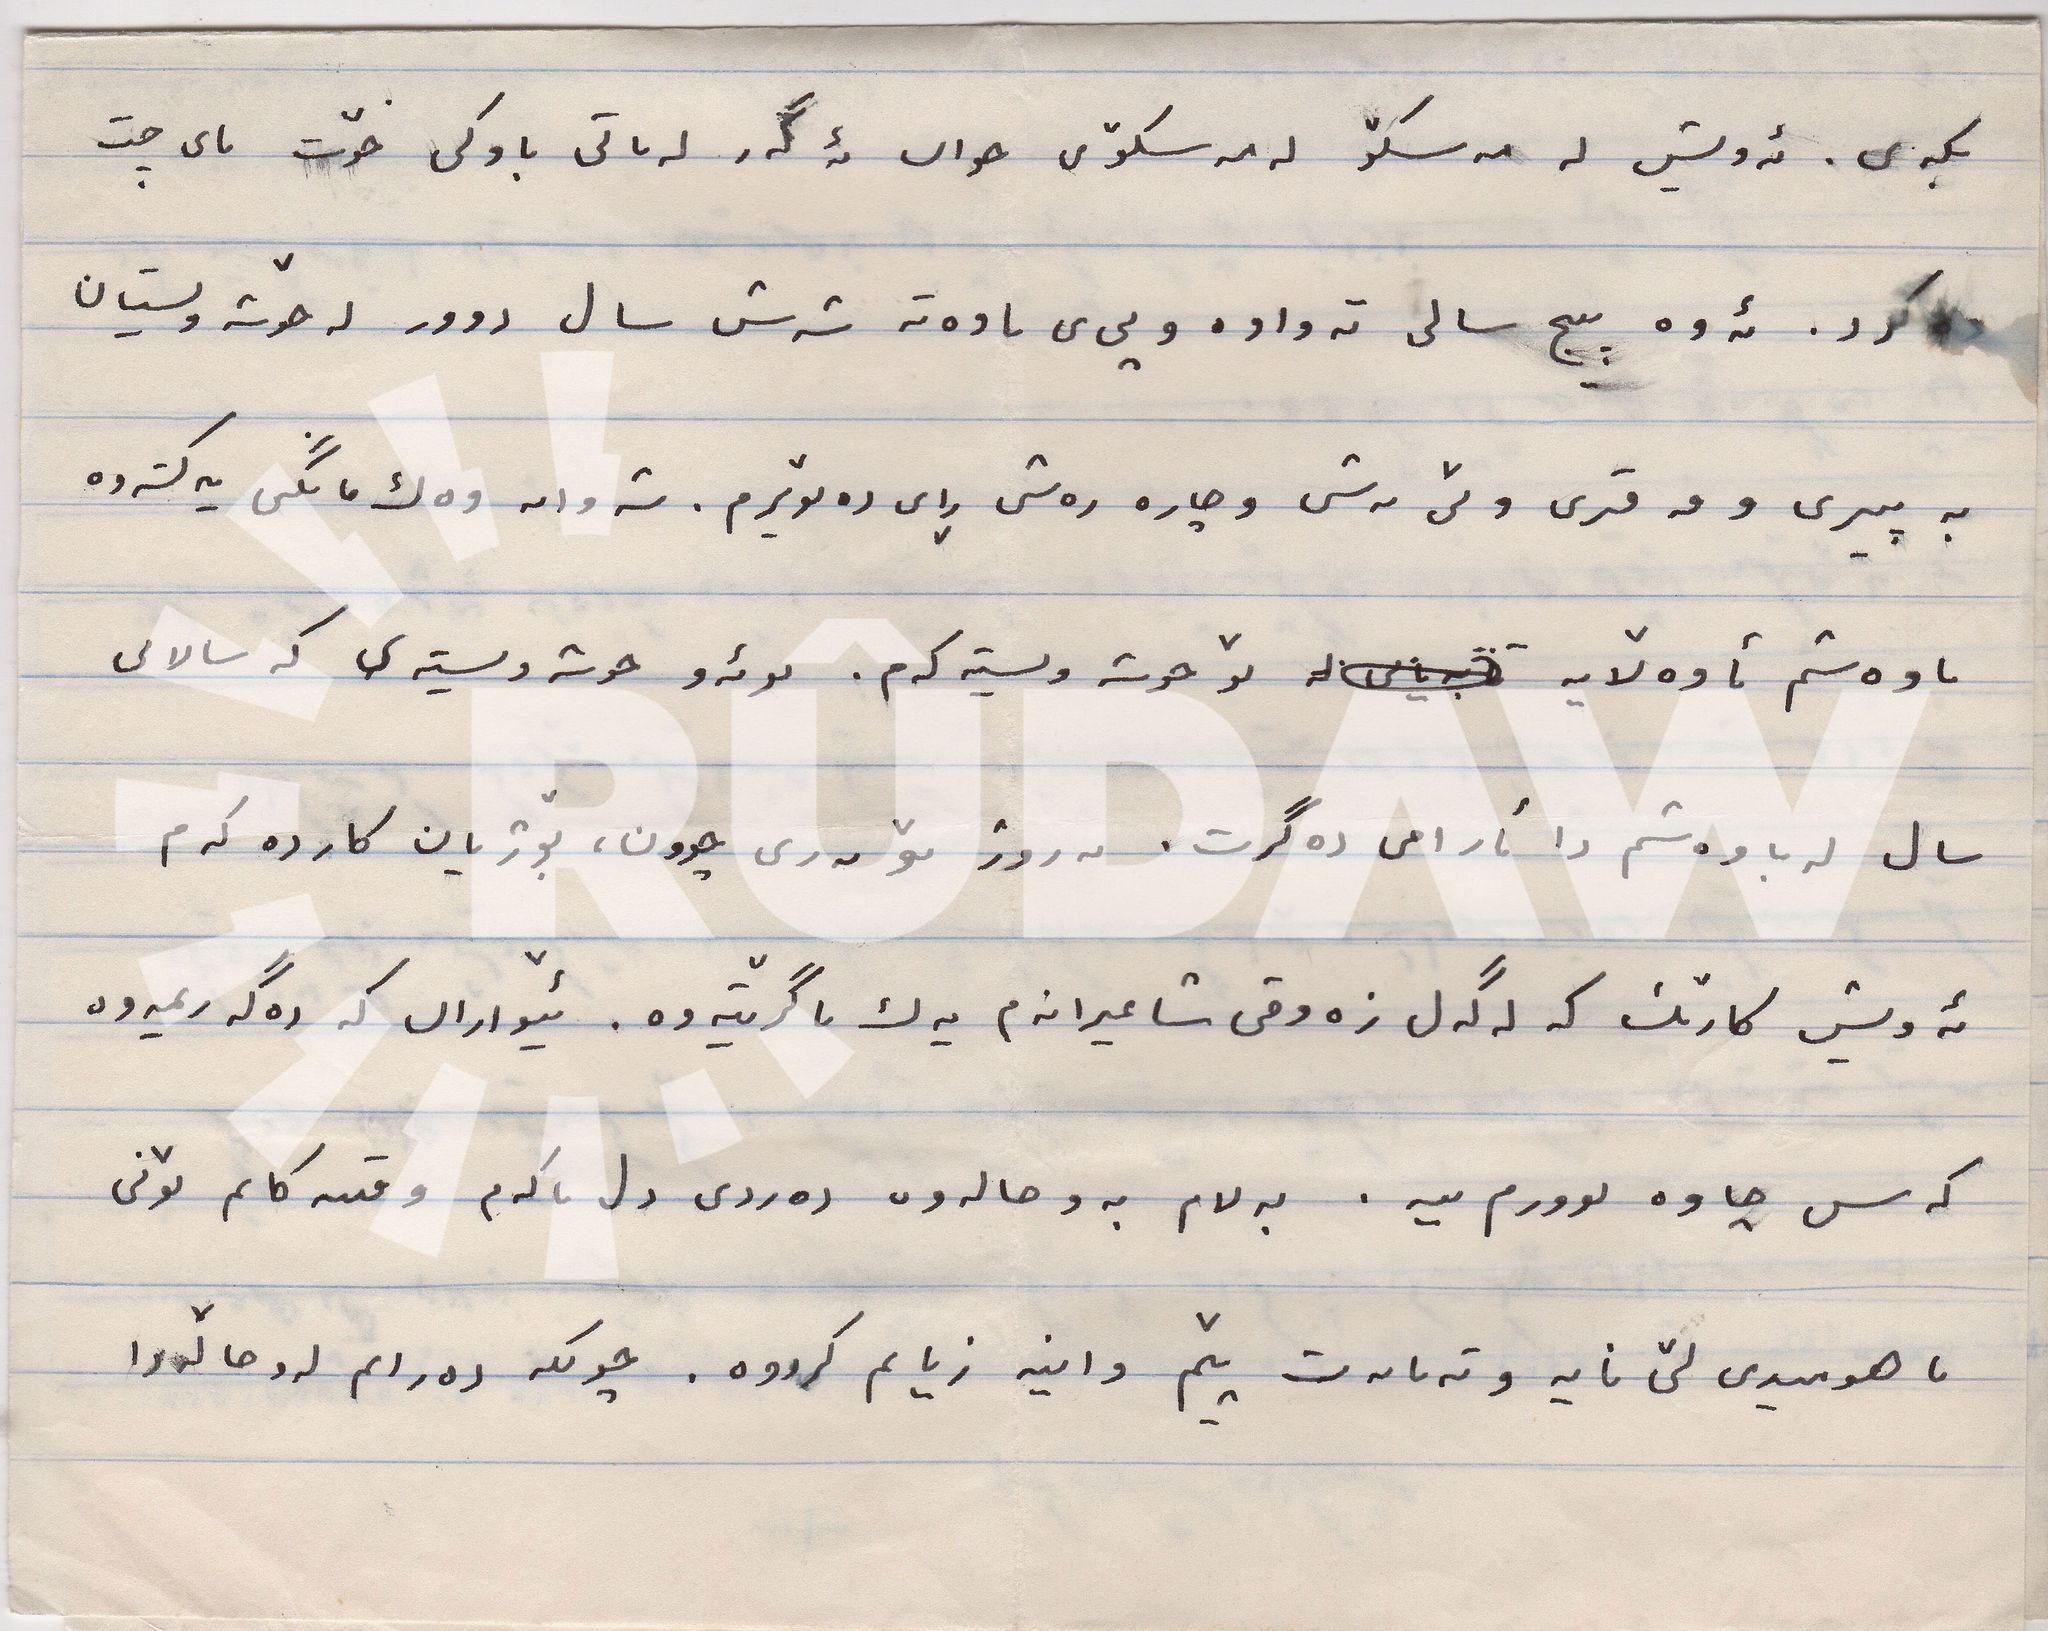 بکەی. ئەویش لە مەسکۆ لەمەسکۆی جوان ئەگەر لەباتی باوکی خۆت بای چیت
دەکرد. ئەوە پینج سالی تەواوە و پی ی ناوەتە شەش سال دوور لەخۆشەویستیان
بە پیری و فەقری و بێ بەشی و چارە رەشی ڕای دەبوێرم. شەوانە وەک مانگی یەکشەوە
باوەشم ئاوەڵایە بۆ خوشەویستەکەم. بوئەو خوشەویستەی کە سالانی
سال لەباوەشم دا ئارامی دەگرت. بەروژ بۆ بەری چوون، بۆ ژیان کاردەکەم
ئەویش کارێک کە لەگەل زەوقی شاعیرانەم یەک ناگرێتەوە. ئێواران کە دەگەریمەوە
کەس چاوە نوورم نییە. بەلام بەوحالەوە دەردی دل ناکەم و قسەکانم بۆنی
ناهومیدی لێ نایە و تەنانەت پێم وانیە زیانم کردووە. چونکە دەزانم لەوحاڵەدا
RÛDAW